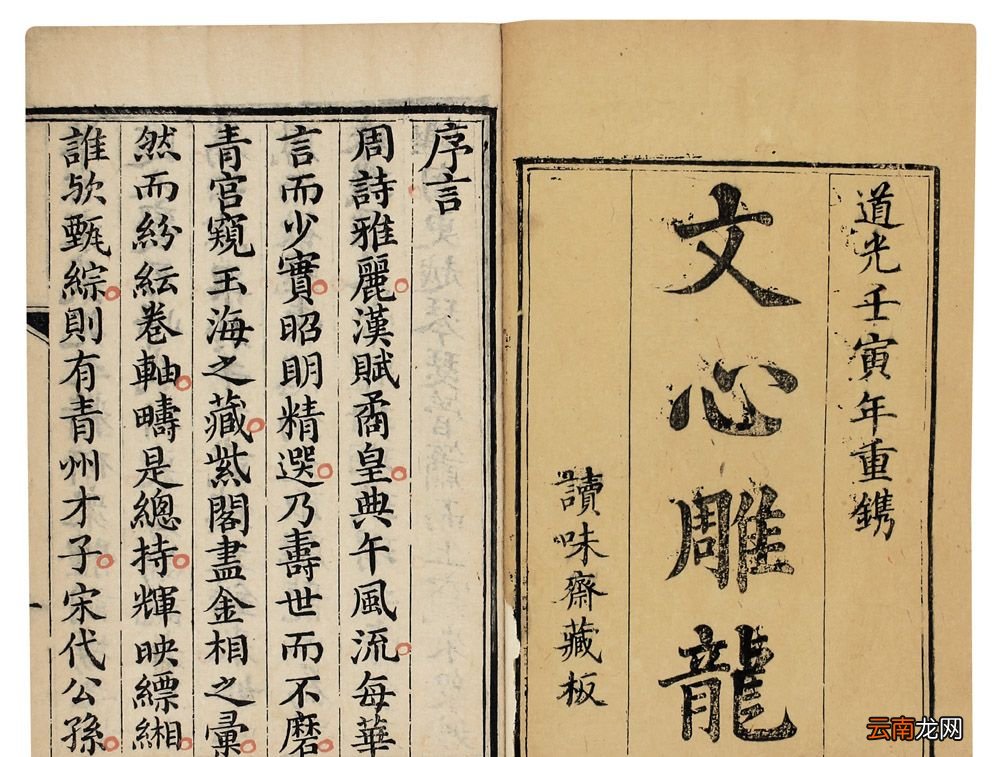 道光壬寅年重鐫
文心雕龍
讀味齋藏板
序言
周詩雅麗漢賦矞皇典午風流每華
言而少實昭明精選乃壽世而不磨
青宮窺玉海之藏紫閣盡金相之彙
然而紛紜卷軸疇是總持輝映縹緗
誰欤甄綜則有青州才子宋代公孫
云南龙网